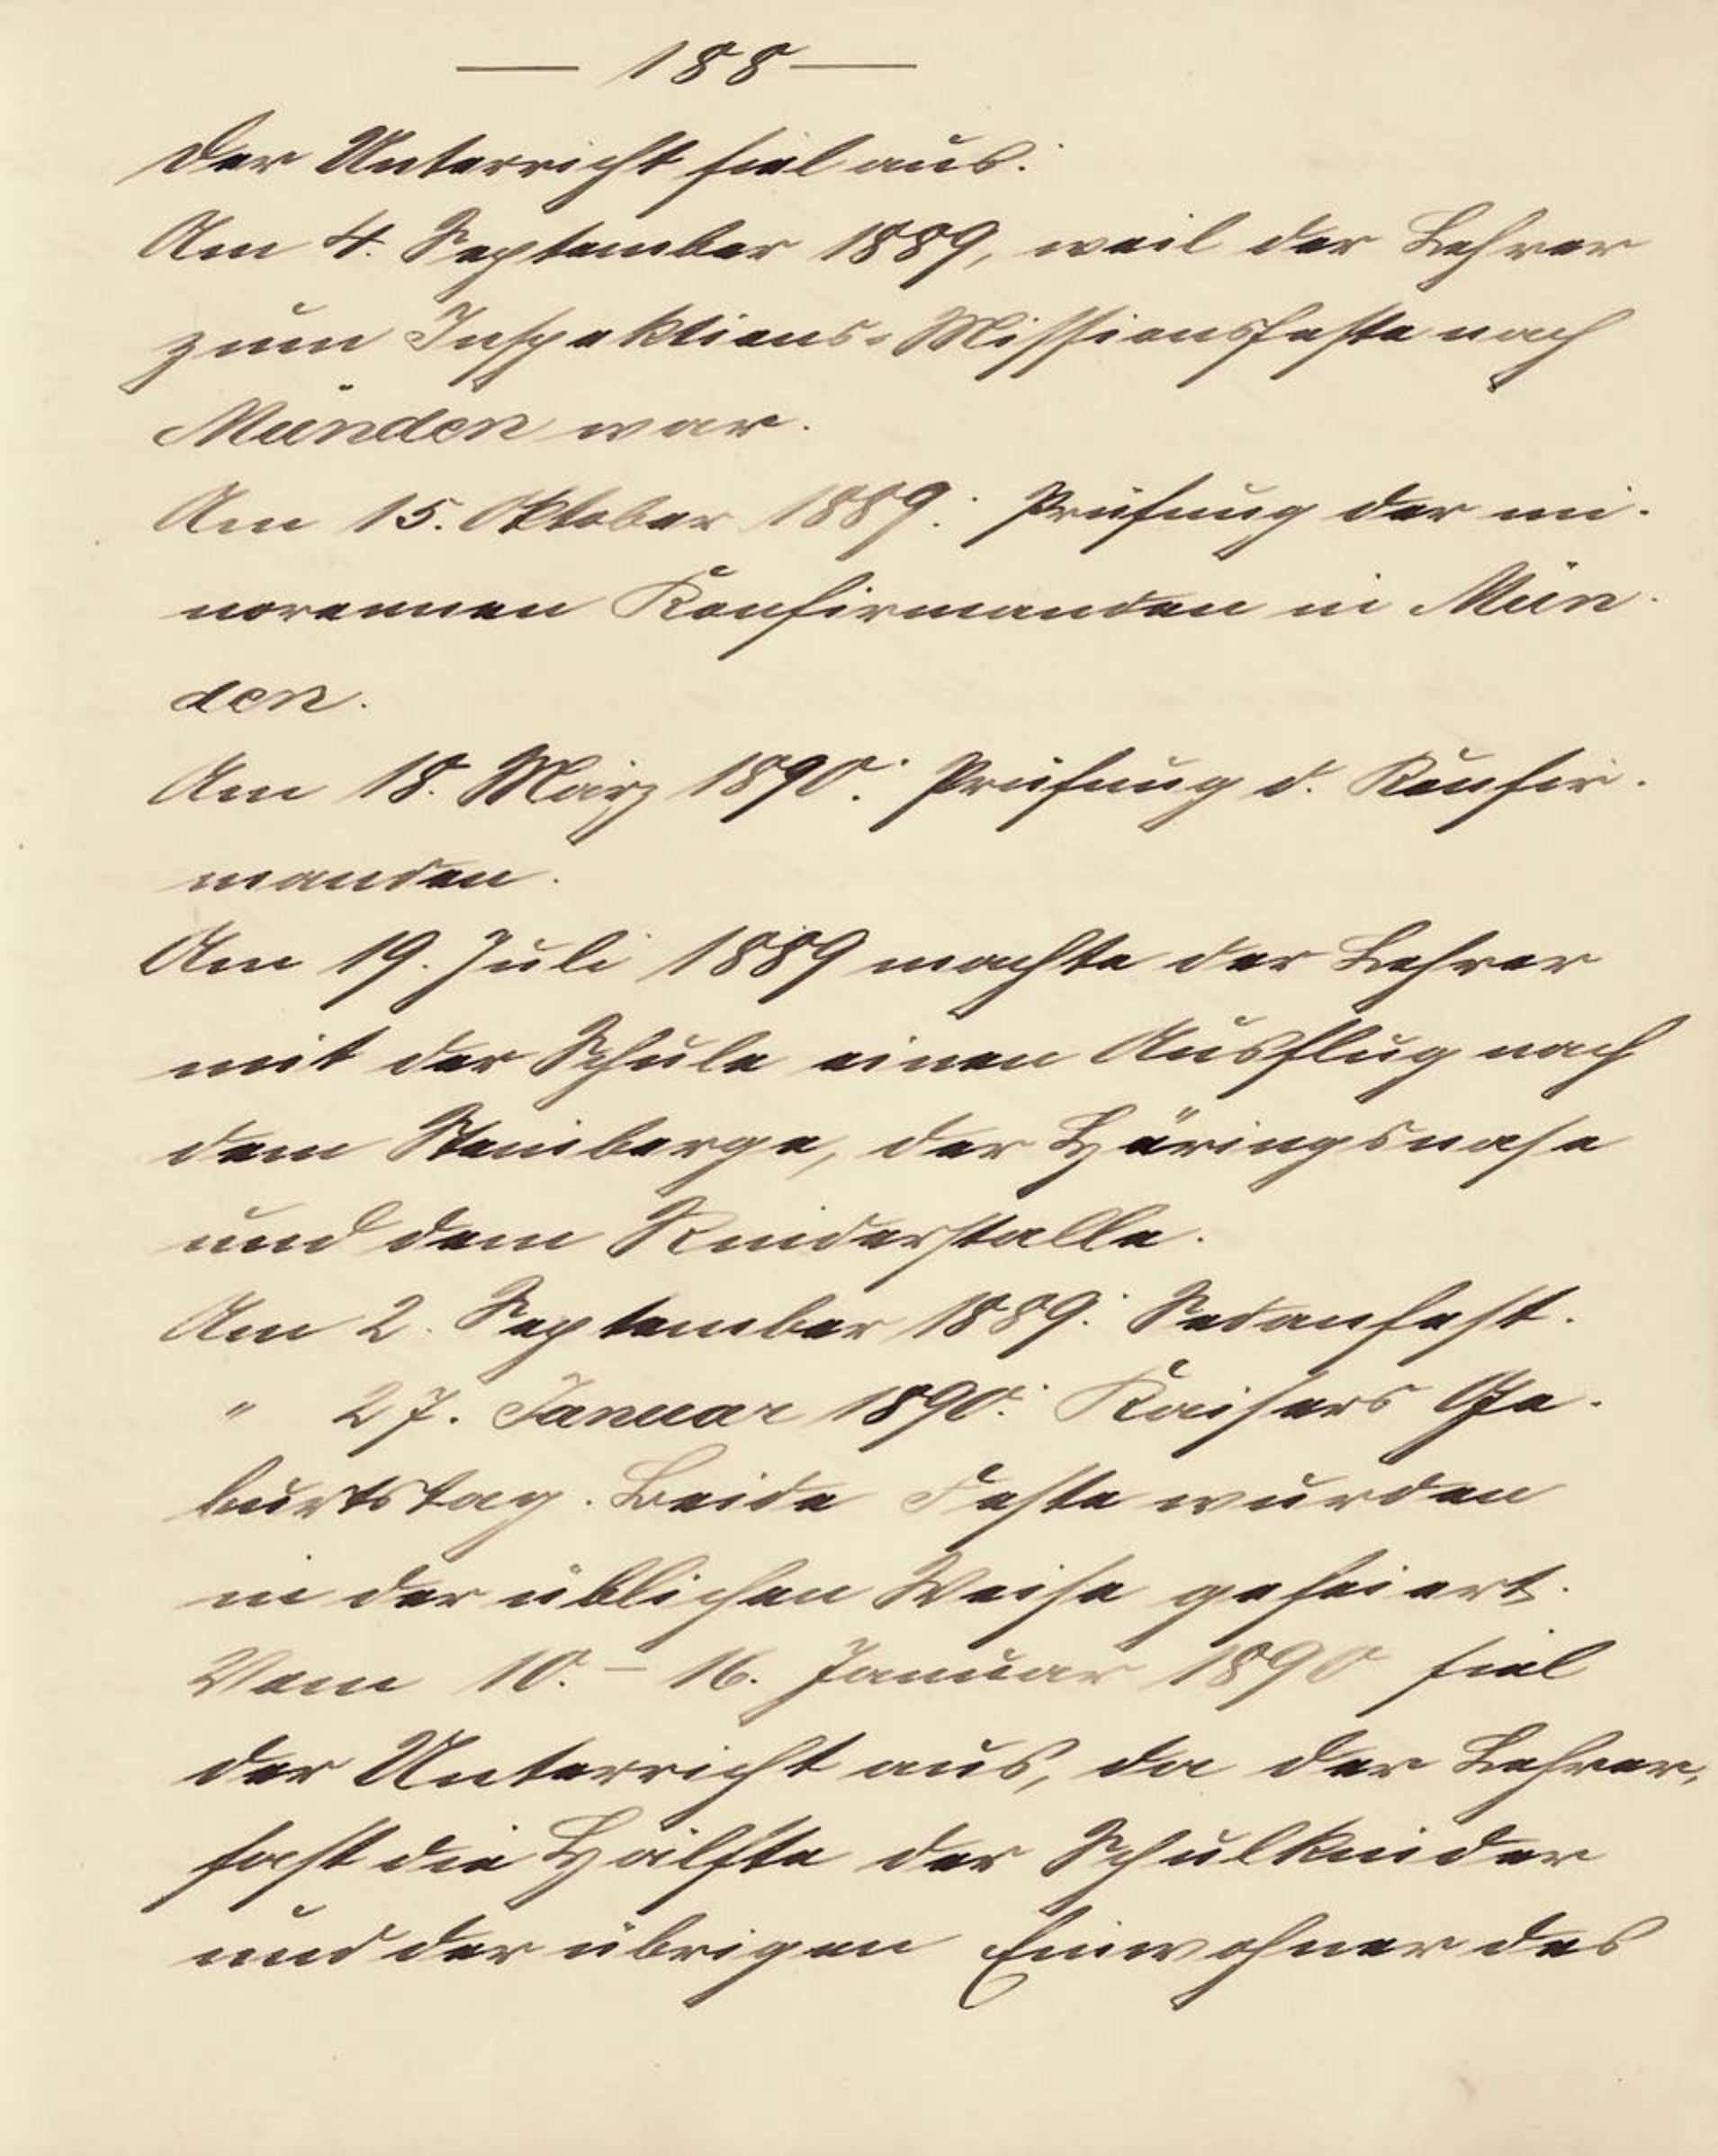 — 188 —
Der Unterricht fiel aus:
Am 4. September 1889, weil der Lehrer
zum Inspektions-Missionsfeste nach
Münden war.
Am 15. Oktober 1889: Prüfung der mi-
norennen Konfirmanden in Mün-
den.
Am 18. März 1890: Prüfung d. Konfir-
manden.
Am 19. Juli 1889 machte der Lehrer
mit der Schule einen Ausflug nach
dem Steinberge, der Häringsnase
und dem Rinderstalle.
Am 2. September 1889: Sedanfest.
" 27. Januar 1890: Kaisers Ge-
burtstag. Beide Feste wurden
in der üblichen Weise gefeiert.
Vom 10. – 16. Januar 1890 fiel
der Unterricht aus, da der Lehrer,
fast die Hälfte der Schulkinder
und der übrigen Einwohner des